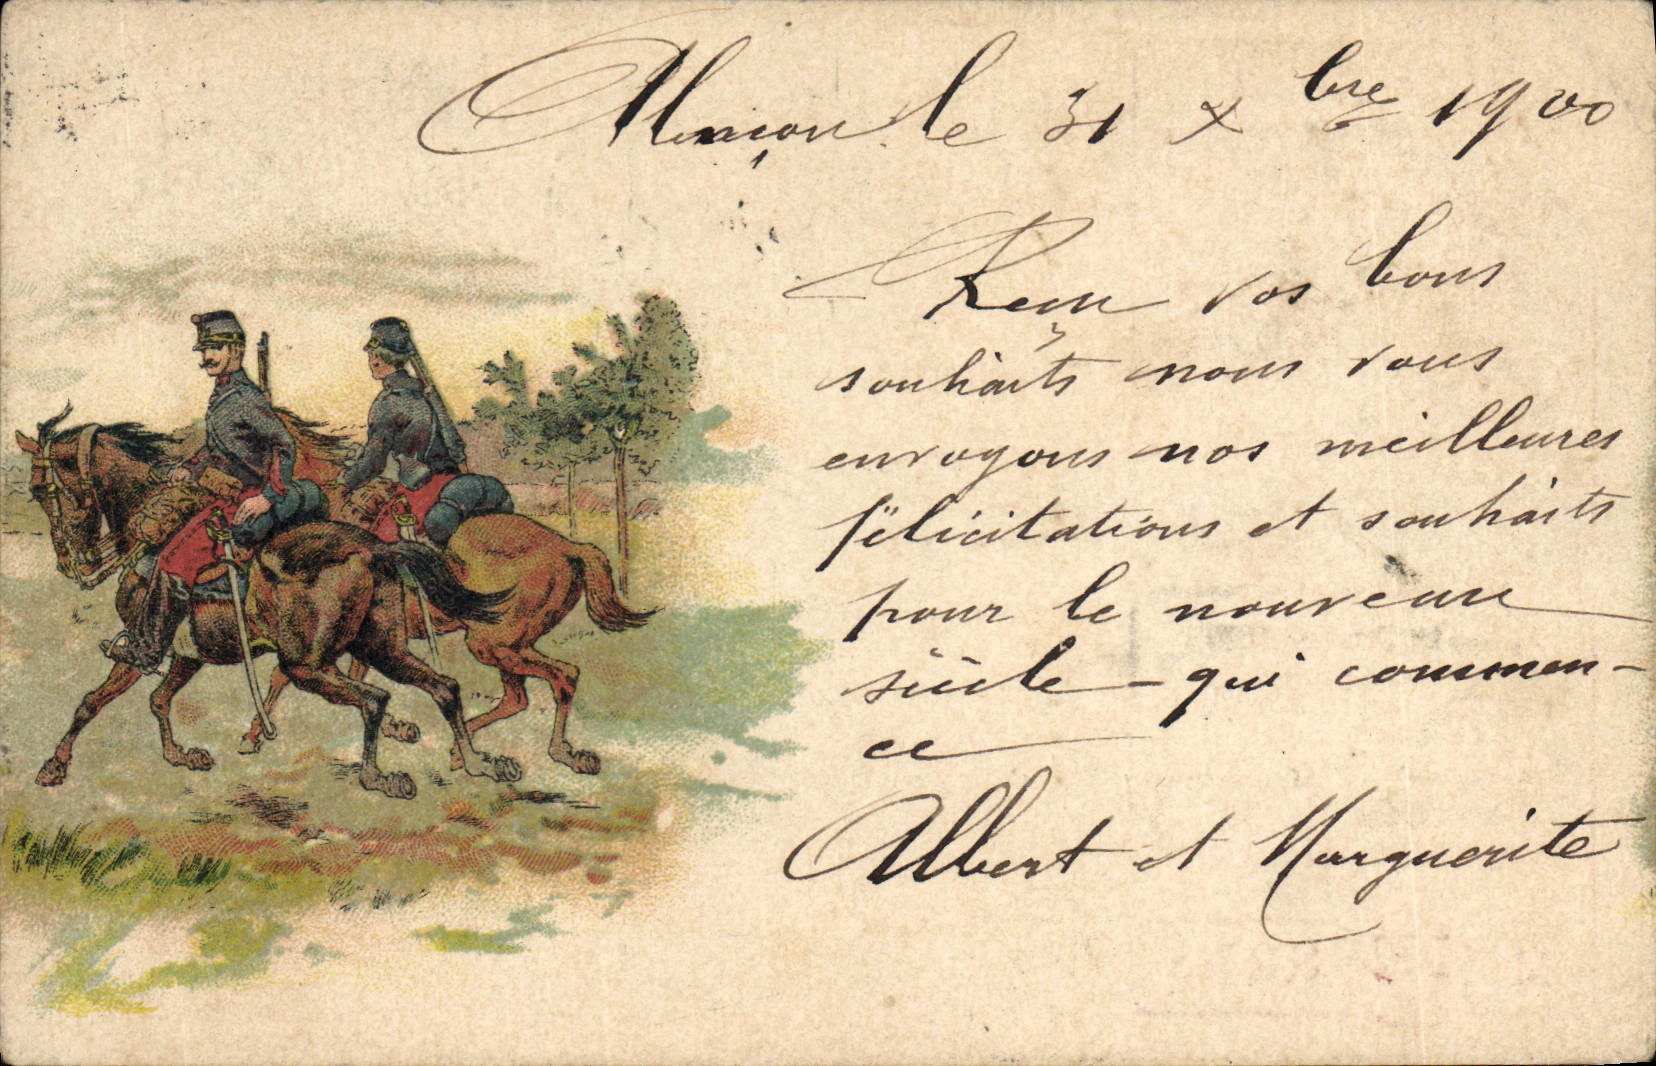 Alençon le 31 Xbre 1900
Reçu vos bons
souhaits nous vous
envoyons nos meilleures
félicitations et souhaits
pour le nouveau
siècle - qui commen-
ce
Albert et Marguerite